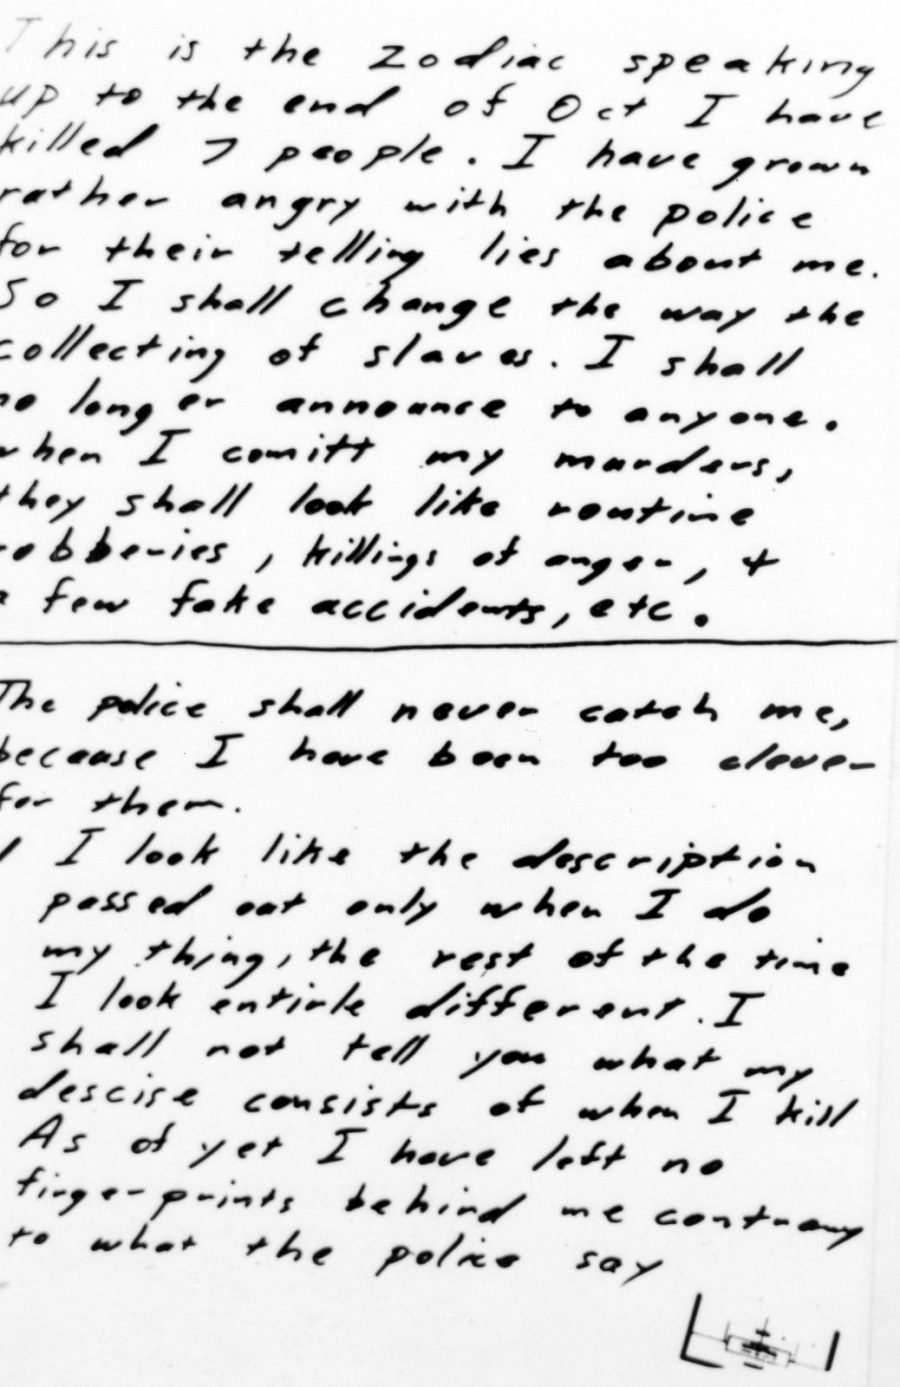 This is the Zodiac speaking
up to the end of Oct I have
killed 7 people. I have grown
rather angry with the police
for their telling lies about me.
So I shall change the way the
collecting of slaves. I shall
no longer announce to anyone.
when I comitt my murders,
they shall look like routine
robberies, killings of anger, +
a few fake accidents, etc.
The police shall never catch me,
because I have been too clever
for them.
1 I look like the description
passed out only when I do
my thing, the rest of the time
I look entirle different. I
shall not tell you what my
descise consists of when I kill
As of yet I have left no
fingerprints behind me contrary
to what the police say